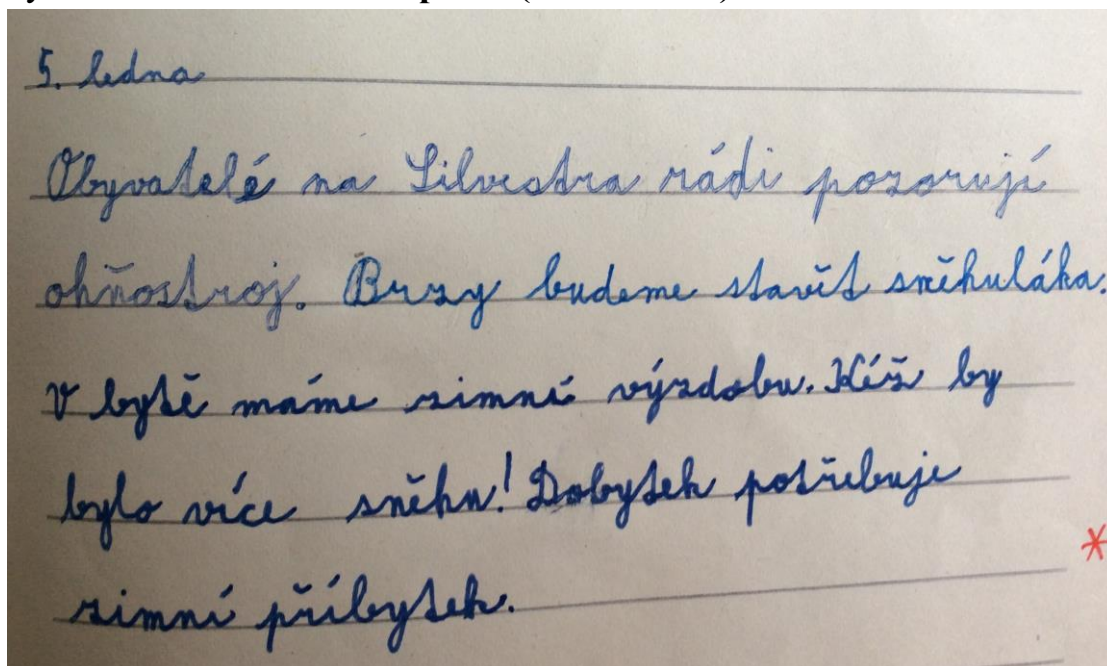 5. ledna
Obyvatelé na Silvestra rádi pozorují
ohňostroj. Brzy budeme stavět sněhuláka.
V bytě máme zimní výzdobu. Kéž by
bylo více sněhu! Dobytek potřebuje
zimní příbytek.